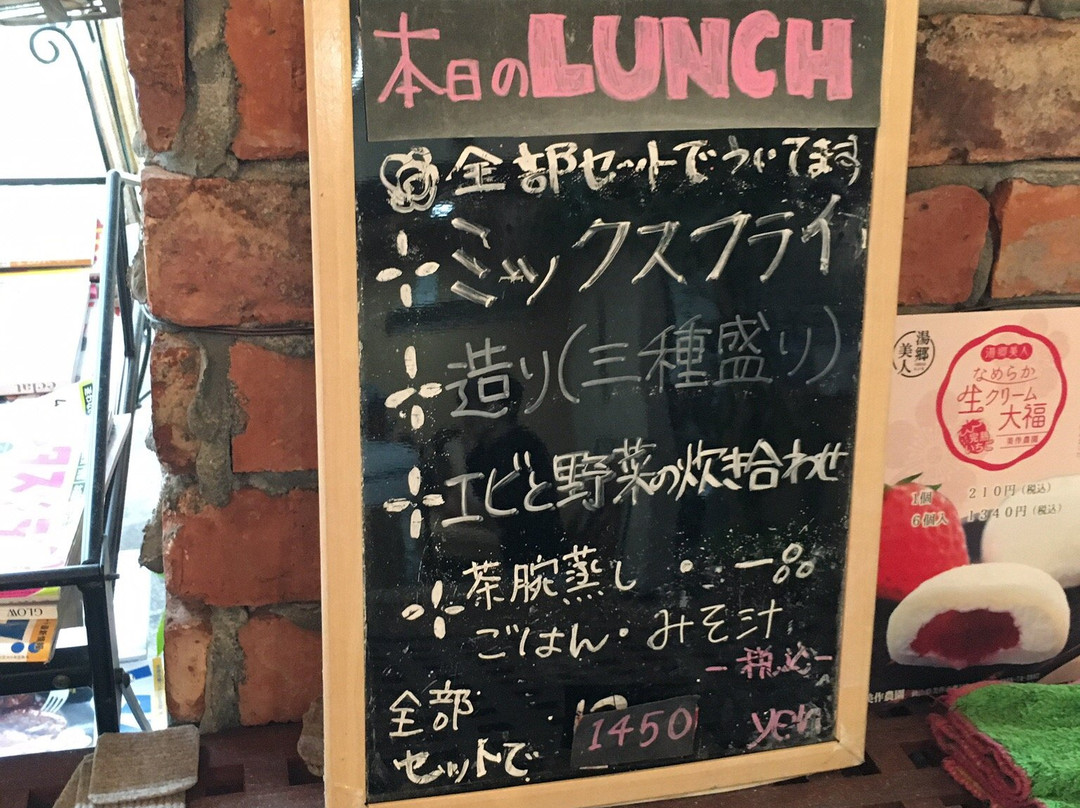 本日のLUNCH
全部セットでついてます
ミックスフライ
造り(三種盛り)
エビと野菜の炊き合わせ
茶腕蒸し・・一品
ごはん・みそ汁
-税込-
全部
セットで
1450 yen
湯郷
美人
湯郷美人
なめらか
生クリーム
大福
美作農園
1個 210円(税込)
6個入 1340円(税込)
美作農園
GLOW